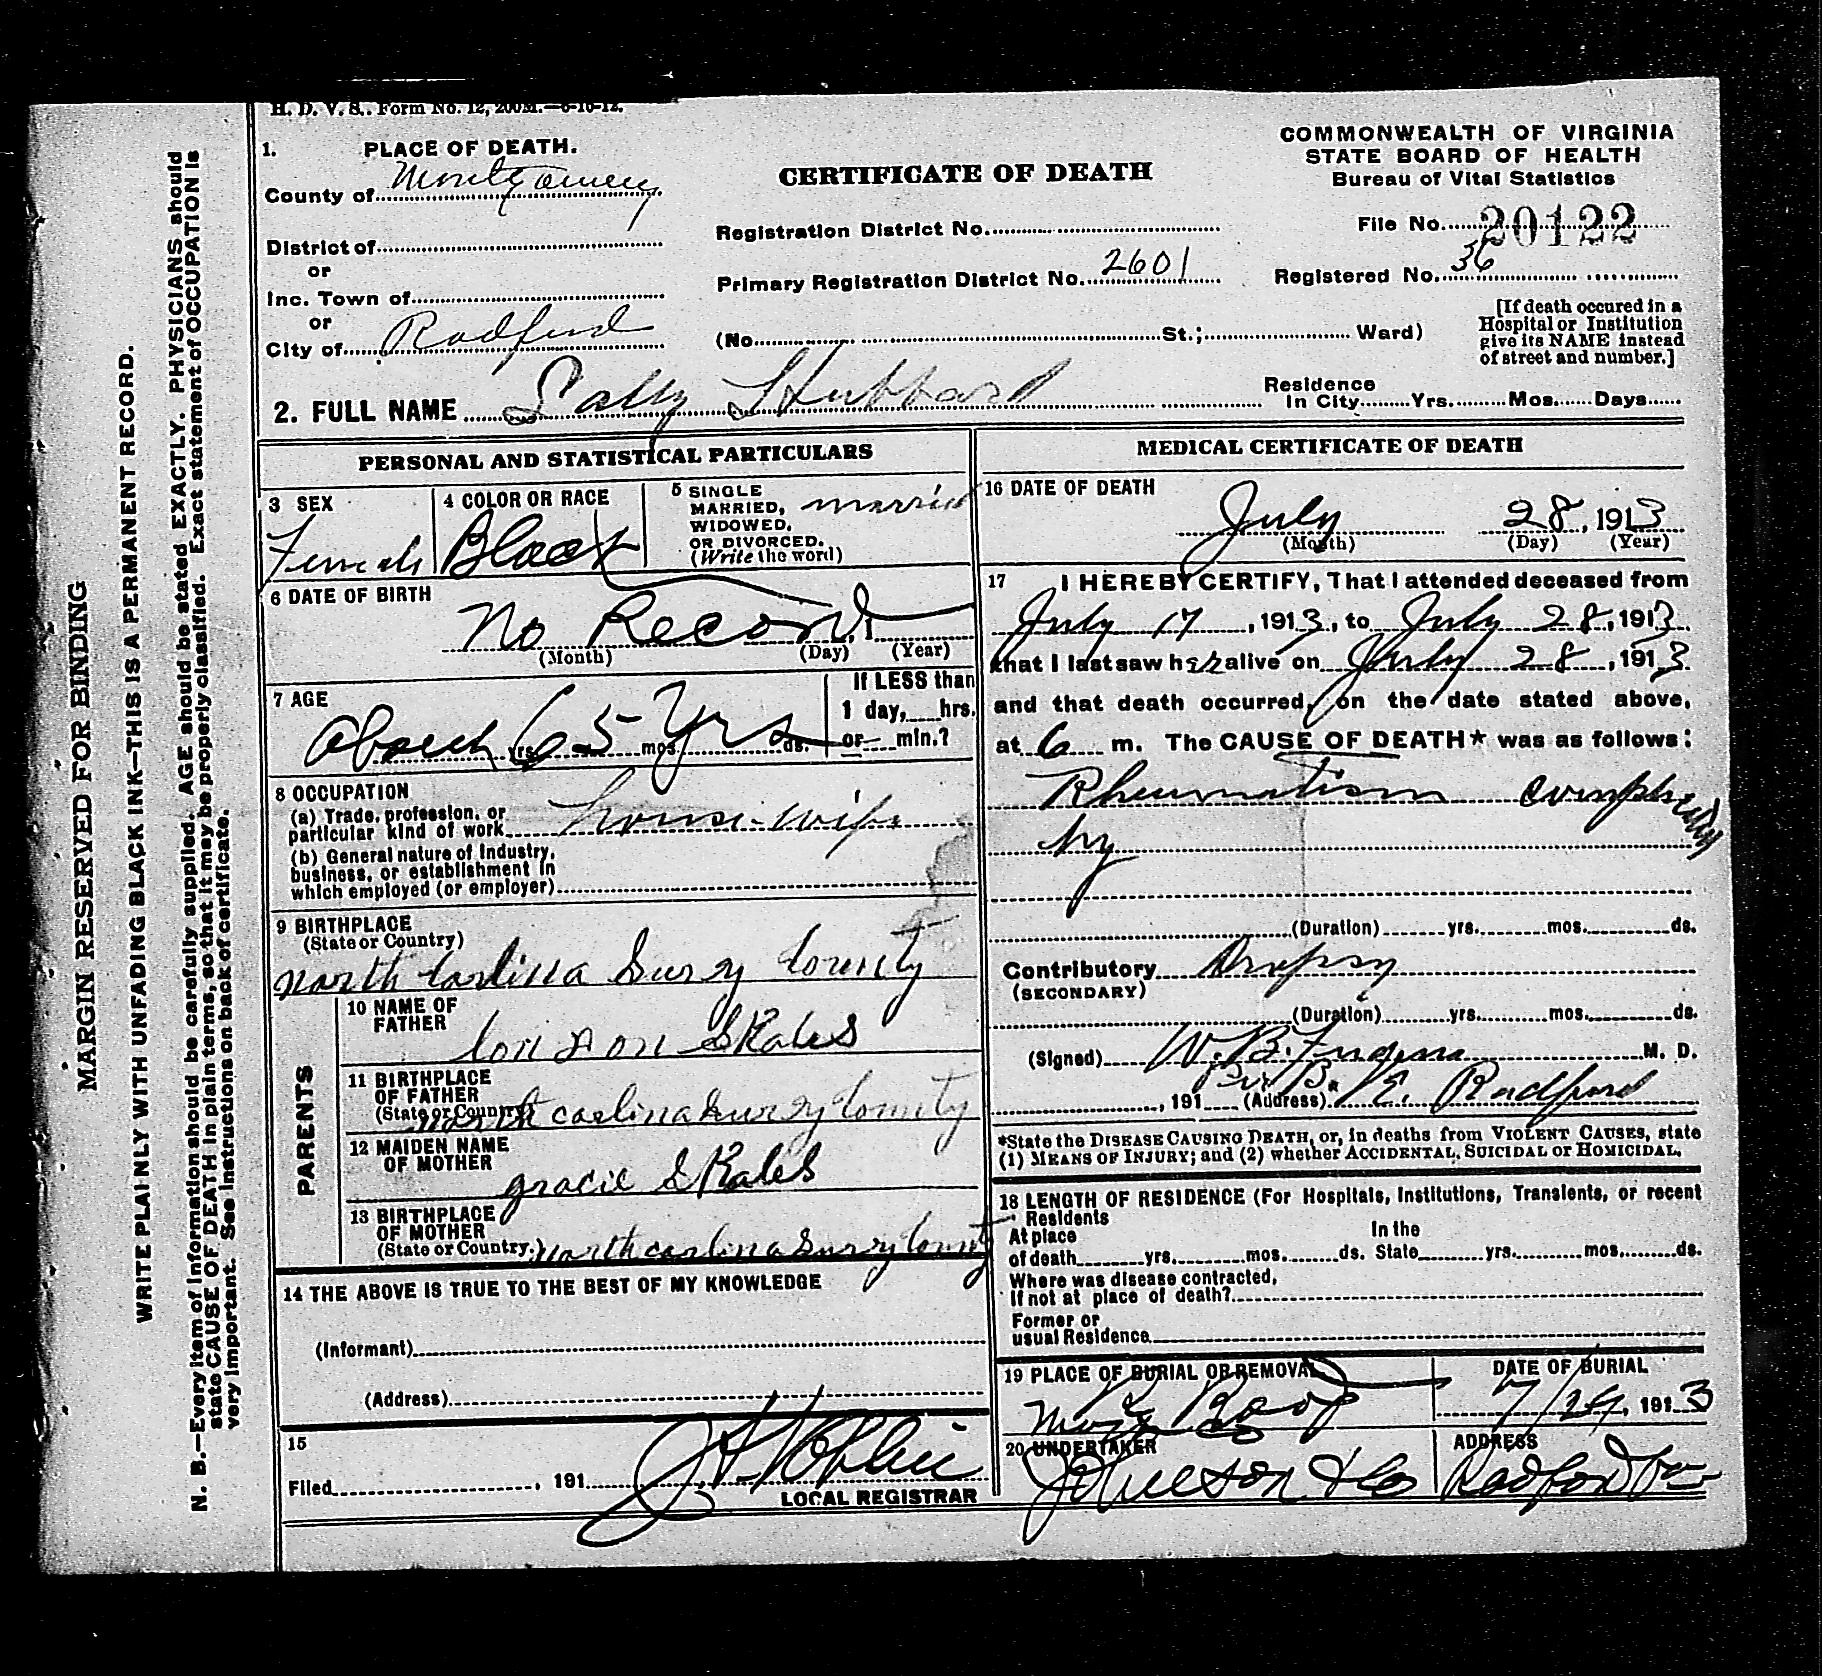 H. D. V. S. Form No. 12, 200M.—6-10-12.
1. PLACE OF DEATH.
County of Montgomery
District of
or
Inc. Town of
or
City of Radford
CERTIFICATE OF DEATH
Registration District No.
Primary Registration District No. 2601
(No. St.; Ward)
COMMONWEALTH OF VIRGINIA
STATE BOARD OF HEALTH
Bureau of Vital Statistics
File No. 20122
Registered No. 36
[If death occured in a
Hospital or Institution
give its NAME instead
of street and number.]
2. FULL NAME Sally Hubbard
Residence
in City Yrs. Mos. Days
PERSONAL AND STATISTICAL PARTICULARS
3 SEX
Female
4 COLOR OR RACE
Black
5 SINGLE
MARRIED, married
WIDOWED,
OR DIVORCED.
(Write the word)
6 DATE OF BIRTH
No Record, 1
(Month) (Day) (Year)
7 AGE
About 65 Yrs
yrs. mos. ds.
If LESS than
1 day, hrs.
or min.?
8 OCCUPATION
(a) Trade, profession, or
particular kind of work house-wife
(b) General nature of Industry,
business, or establishment in
which employed (or employer)
9 BIRTHPLACE
(State or Country)
north Carlina Surry County
PARENTS
10 NAME OF
FATHER
lon don Skales
11 BIRTHPLACE
OF FATHER
(State or Country) north carlina surry County
12 MAIDEN NAME
OF MOTHER
gracie Skales
13 BIRTHPLACE
OF MOTHER
(State or Country.) north carlina Surry County
14 THE ABOVE IS TRUE TO THE BEST OF MY KNOWLEDGE
(Informant)
(Address)
15
Filed , 191
LOCAL REGISTRAR
MEDICAL CERTIFICATE OF DEATH
16 DATE OF DEATH
July 28, 1913
(Month) (Day) (Year)
17 I HEREBY CERTIFY, That I attended deceased from
July 17, 1913, to July 28, 1913
that I last saw her alive on July 28, 1913
and that death occurred, on the date stated above,
at 6 m. The CAUSE OF DEATH* was as follows:
Rheumatism
by
(Duration) yrs. mos. ds.
Contributory Dropsy
(SECONDARY)
(Duration) yrs. mos. ds.
(Signed) W. B. M. D.
, 191 (Address) E. Radford
*State the DISEASE CAUSING DEATH, or, in deaths from VIOLENT CAUSES, state
(1) MEANS OF INJURY; and (2) whether ACCIDENTAL, SUICIDAL or HOMICIDAL.
18 LENGTH OF RESIDENCE (For Hospitals, Institutions, Transients, or recent
Residents
At place In the
of death yrs. mos. ds. State yrs. mos. ds.
Where was disease contracted,
If not at place of death?
Former or
usual Residence
19 PLACE OF BURIAL OR REMOVAL
DATE OF BURIAL
7/29, 1913
20 UNDERTAKER
ADDRESS
Radford Va
MARGIN RESERVED FOR BINDING
WRITE PLAINLY WITH UNFADING BLACK INK—THIS IS A PERMANENT RECORD.
N. B.—Every item of information should be carefully supplied. AGE should be stated EXACTLY. PHYSICIANS should
state CAUSE OF DEATH in plain terms, so that it may be properly classified. Exact statement of OCCUPATION is
very important. See instructions on back of certificate.